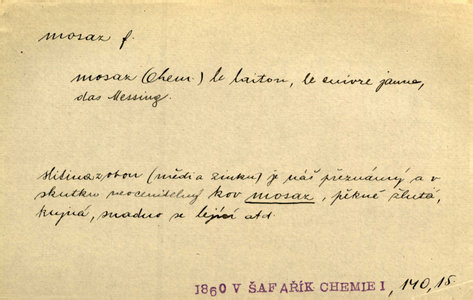 mosaz f.
mosaz (Chem.) le laiton, le cuivre jaune,
das Messing.
slitina z obou (mědi a zinku) je náš přeznámý a v
skutku neocenitelný kov mosaz, pěkně žlutá,
kujná, snadno se lející atd.
1860 V ŠAFAŘÍK CHEMIE I, 140, 18.